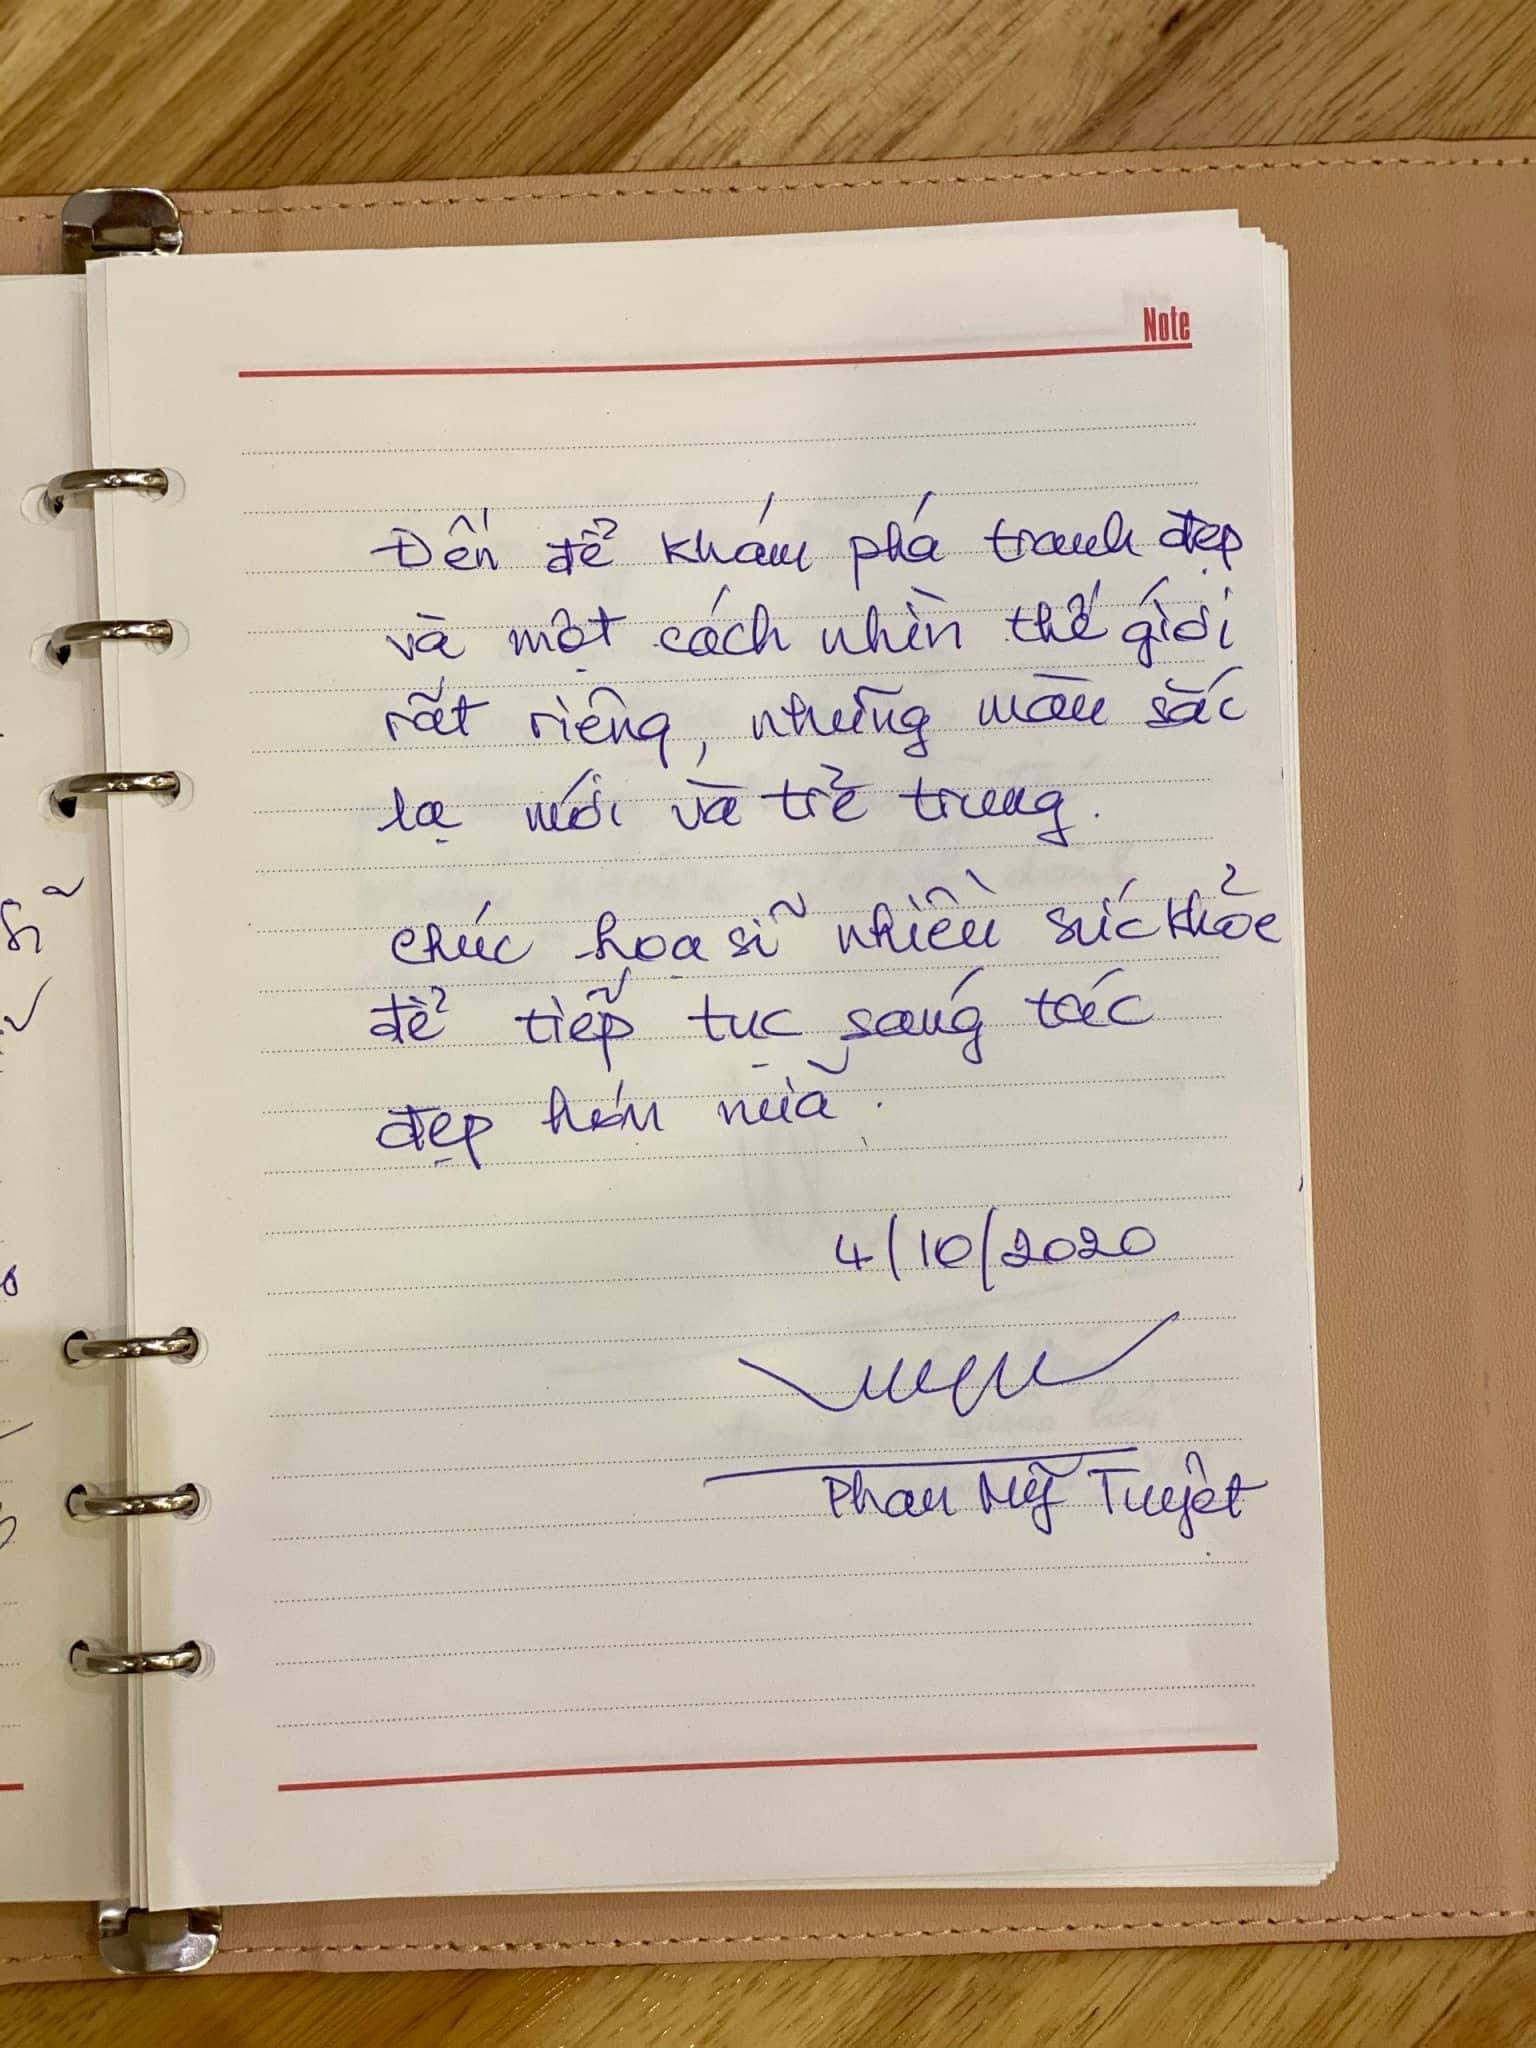 Note
Đến để khám phá tranh đẹp
và một cách nhìn thế giới
rất riêng, những màu sắc
lạ mới và trẻ trung.
chúc họa sĩ nhiều sức khỏe
để tiếp tục sáng tác
đẹp hơn nữa.
4/10/2020
Phan Mỹ Tuyệt